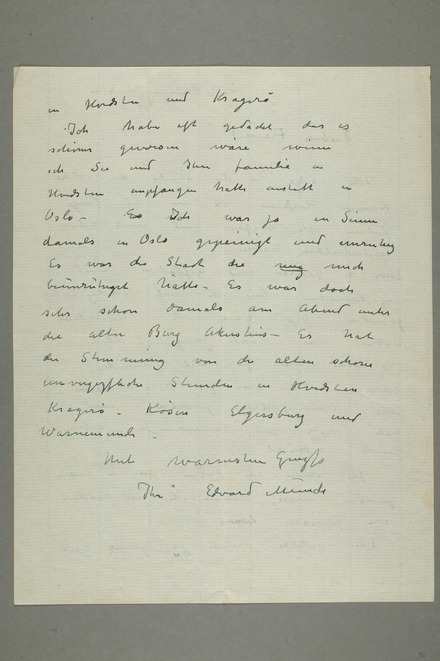 in Hvidsten und Kragerö
Ich habe oft gedacht das es
schöner gewesen wäre wenn
ich Sie und Ihre Familie in
Hvidsten empfangen hätte anstatt in
Oslo – Es Ich war ja in Sinne
damals in Oslo gepeinigt und unruhig
Es war die Stadt die mich
beunruhigt hatte – Es war doch
sehr schön damals am Abend unter
die alten Burg Akershus – Es hat
die Stimmung von die alten schöne
unvergeßliche Stunden in Hvidsten
Kragerö – Kösen Elgersburg und
Warnemünde –
Mit warmsten Gruss
Ihr Edvard Munch